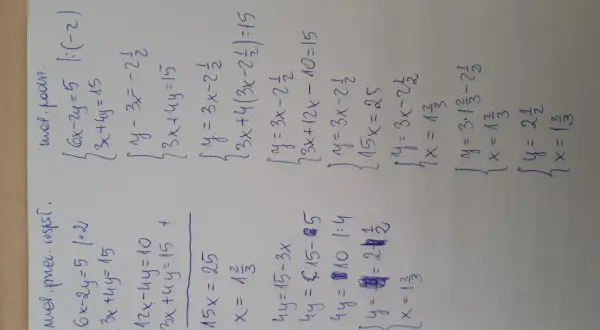 met. przec. współ.
{6x-2y=5 |·2
{3x+4y=15
12x-4y=10
3x+4y=15 +
15x=25
x=1 2/3
4y=15-3x
4y=15-5
4y=10 |:4
{y=2 1/2
{x=1 2/3
met. podst.
{6x-2y=5 |:(-2)
{3x+4y=15
{y-3x=-2 1/2
{3x+4y=15
{y=3x-2 1/2
{3x+4(3x-2 1/2)=15
{y=3x-2 1/2
{3x+12x-10=15
{y=3x-2 1/2
{15x=25
{y=3x-2 1/2
{x=1 2/3
{y=3·1 2/3-2 1/2
{x=1 2/3
{y=2 1/2
{x=1 2/3